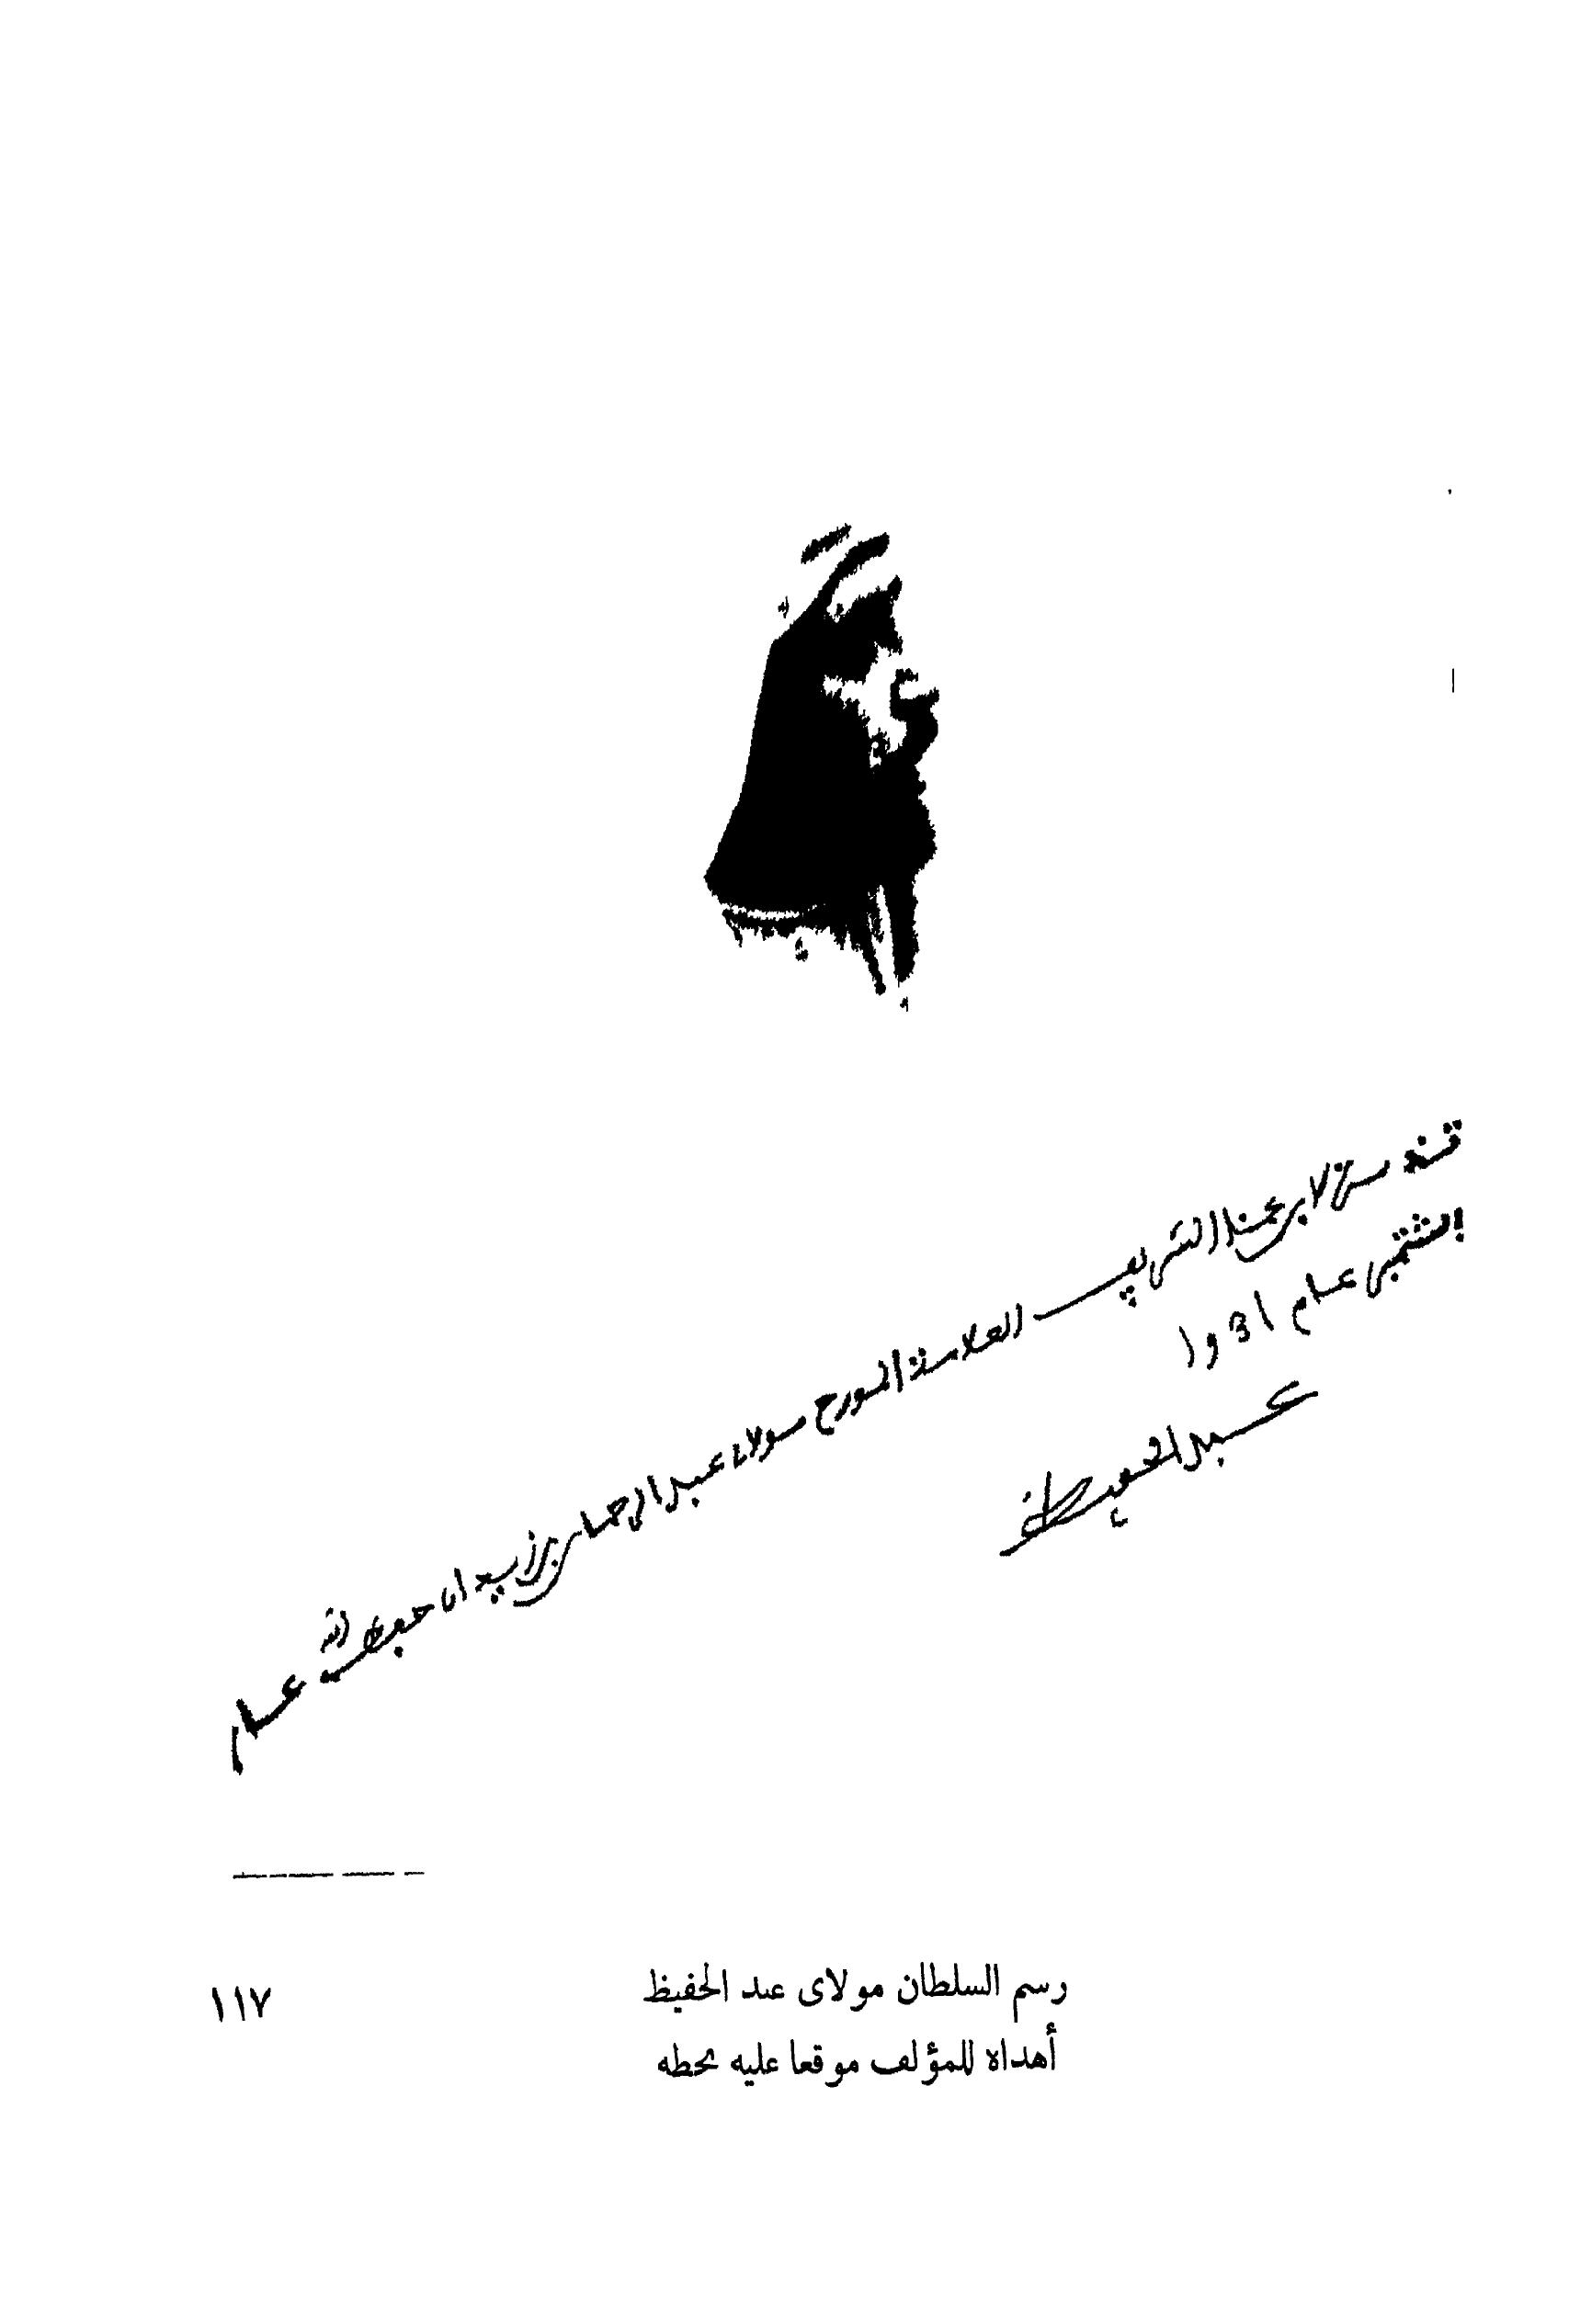 لابن عمنا الشريف العلامة المورخ مولانا عبد الرحمان بن زيدان حفظه الله عام
شتنبر عام 1931
عبد الحفيظ
رسم السلطان مولاى عبد الحفيظ
أهداه للمؤلف موقعا عليه بخطه
١١٧